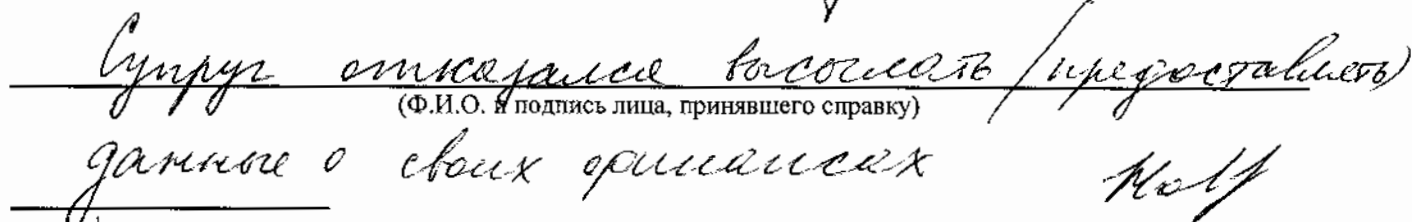 Супруг отказался высылать (предоставлять)
(Ф.И.О. и подпись лица, принявшего справку)
данные о своих финансах